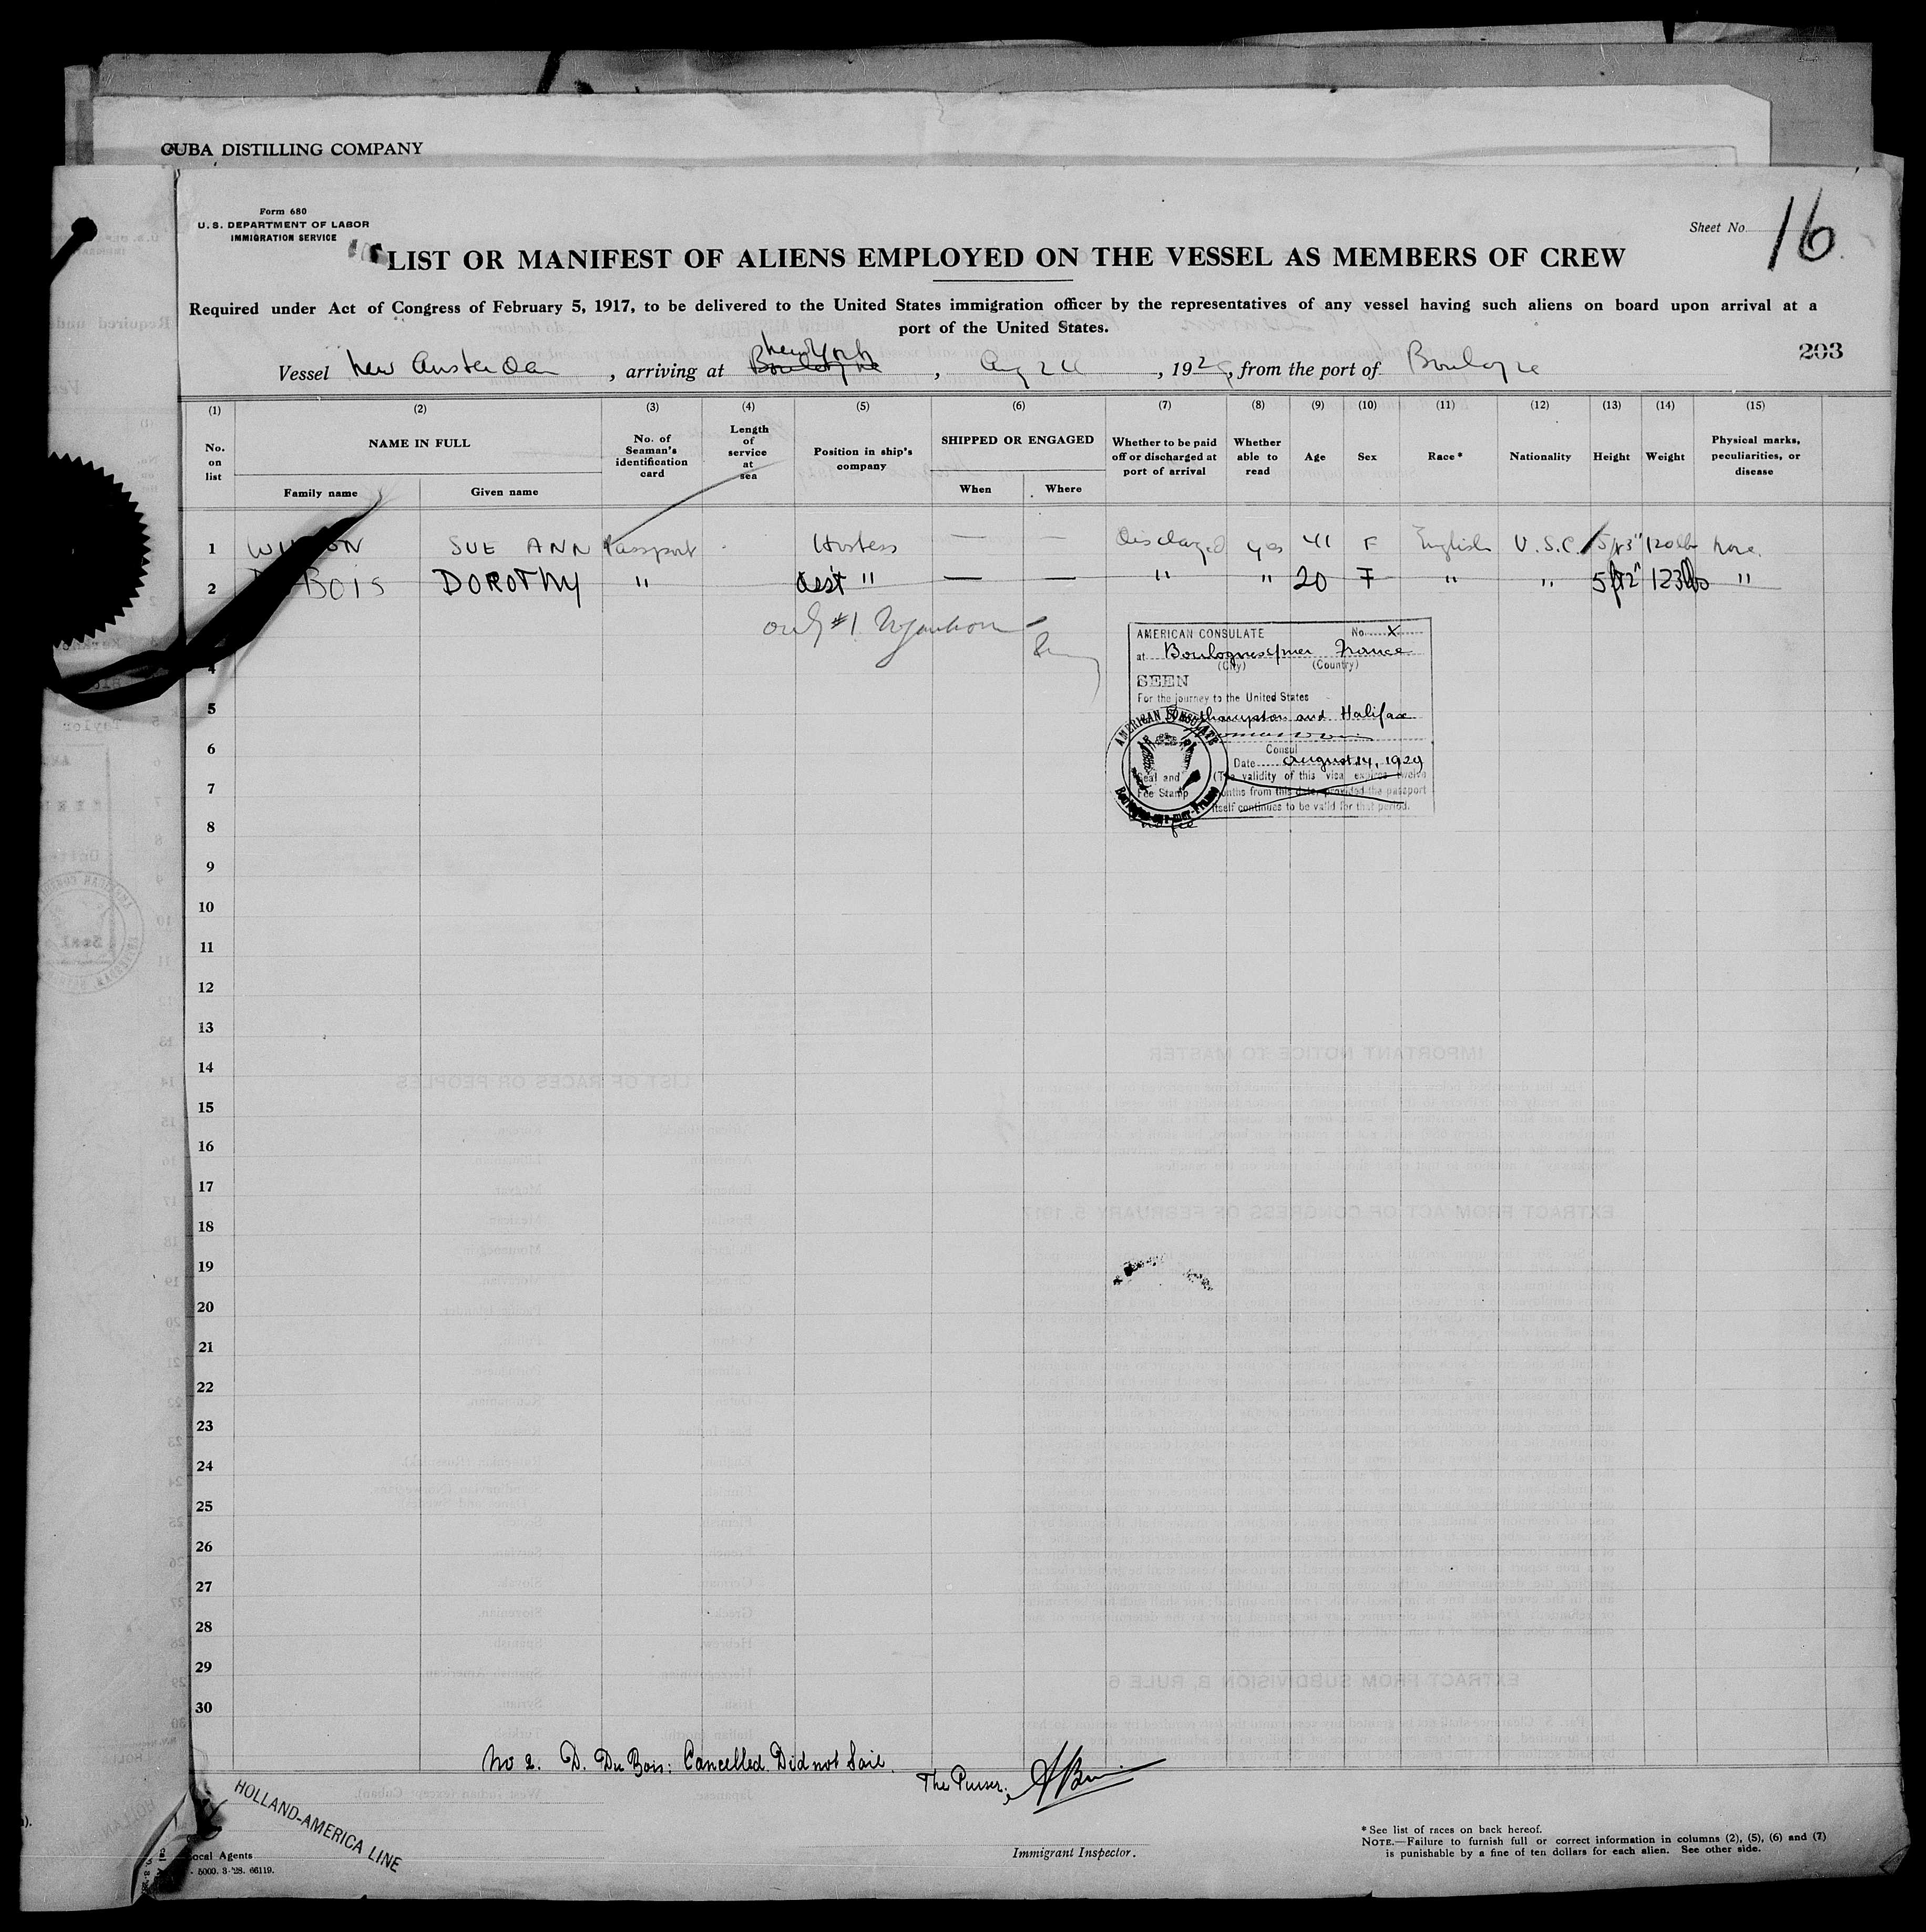 CUBA DISTILLING COMPANY
Form 680
U. S. DEPARTMENT OF LABOR
IMMIGRATION SERVICE
Sheet No. 16
LIST OR MANIFEST OF ALIENS EMPLOYED ON THE VESSEL AS MEMBERS OF CREW
Required under Act of Congress of February 5, 1917, to be delivered to the United States immigration officer by the representatives of any vessel having such aliens on board upon arrival at a
port of the United States.
203
New York
Vessel New Amsterdam, arriving at Boulogne, Aug 24, 1929, from the port of Boulogne
(1) (2) (3) (4) (5) (6) (7) (8) (9) (10) (11) (12) (13) (14) (15)
No. on list NAME IN FULL Family name Given name No. of Seaman's identification card Length of service at sea Position in ship's company SHIPPED OR ENGAGED When Where Whether to be paid off or discharged at port of arrival Whether able to read Age Sex Race* Nationality Height Weight Physical marks, peculiarities, or disease
1 SUE ANN Passport Hostess — — Discharged yes 41 F English U.S.C. 5ft3" 120lbs None.
2 DuBOIS DOROTHY " asst " — — " " 20 F " " 5ft2" 123lbs "
only #1
4
5
6
7
8
AMERICAN CONSULATE No. X
at Boulogne s/mer France
(City) (Country)
SEEN
For the journey to the United States
Southampton and Halifax
Consul
Date August 14, 1929
(The validity of this visa expires twelve
months from this date, provided the passport
itself continues to be valid for that period.
AMERICAN CONSULATE
Boulogne-sur-mer-France
Seal and
Fee Stamp
no fee
9
10
11
12
13
14
15
16
17
18
19
20
21
22
23
24
25
26
27
28
29
30
No 2. D. Du Bois: Cancelled. Did not Sail.
The Purser.
HOLLAND-AMERICA LINE
Local Agents
5000. 3-'28. 66119.
Immigrant Inspector.
* See list of races on back hereof.
NOTE.—Failure to furnish full or correct information in columns (2), (5), (6) and (7)
is punishable by a fine of ten dollars for each alien. See other side.